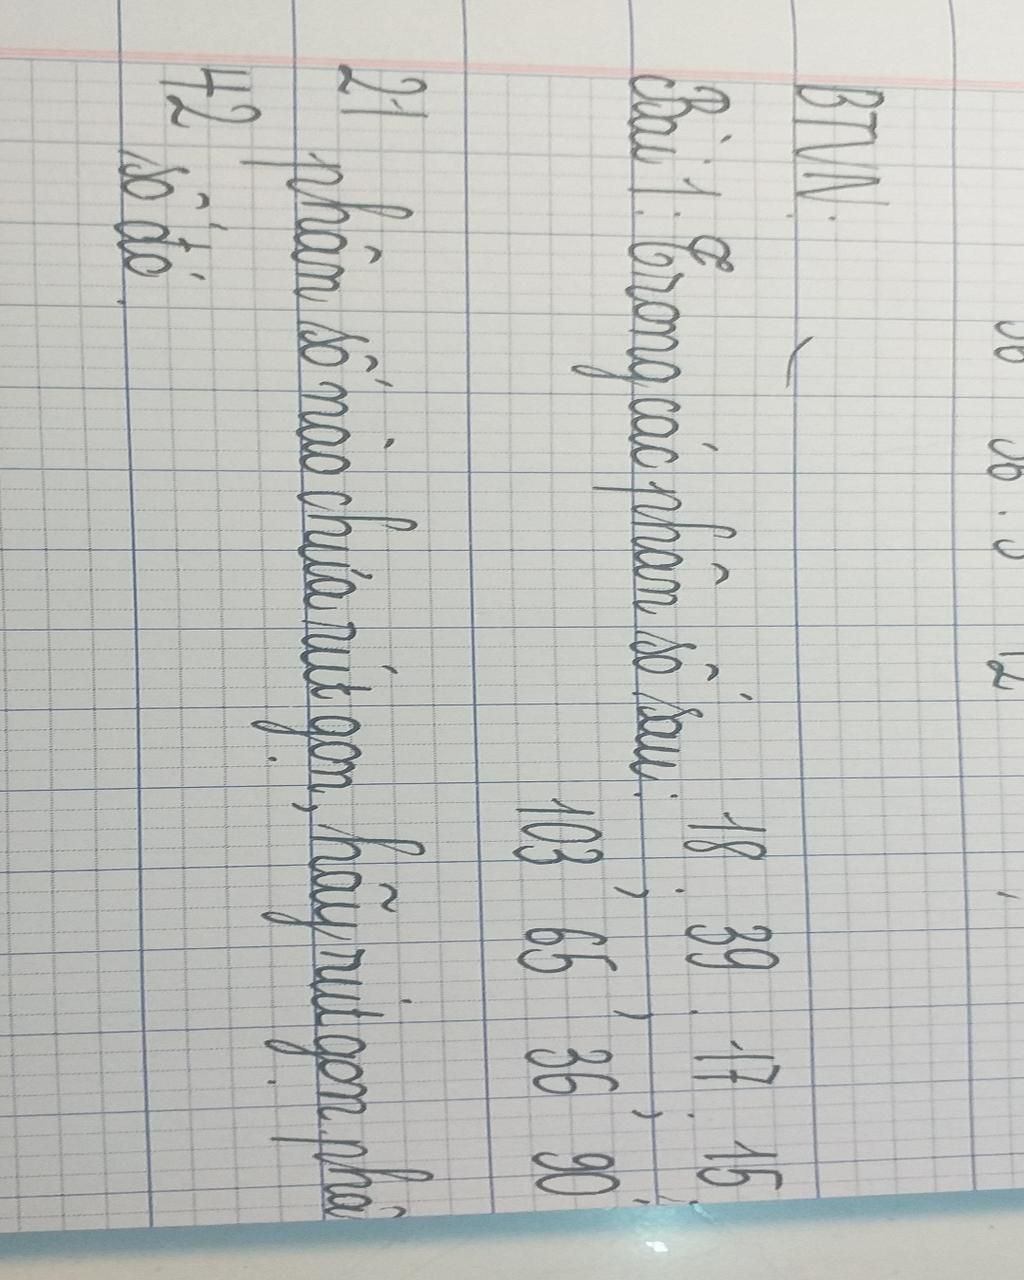 36 36 . 3 12 ,
BTVN:
Bài 1: Trong các phân số sau: 18 ; 39 ; 17 ; 15 ;
103 65 36 90
21 phân số nào chưa rút gọn, hãy rút gọn phâ
42 số đó.